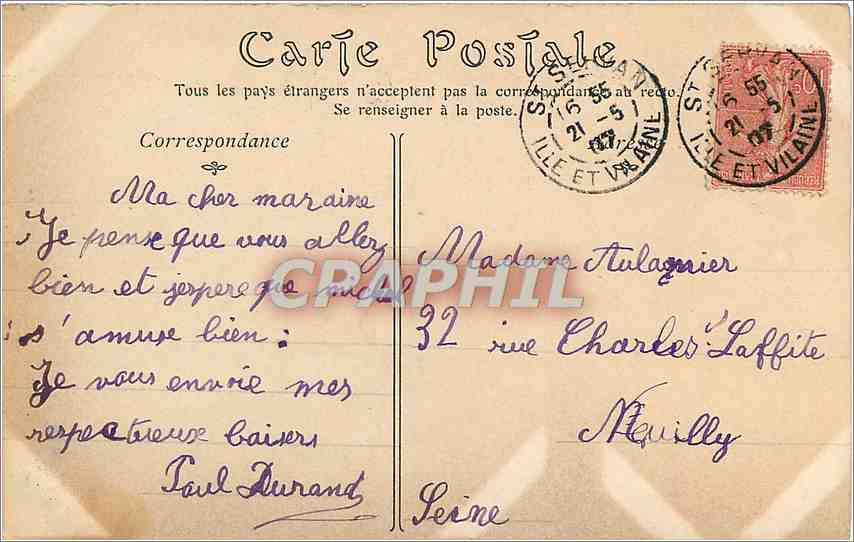 Carte Postale
Tous les pays étrangers n'acceptent pas la correspondance au recto.
Se renseigner à la poste.
Correspondance
Adresse
ST SERVAN
16 55
21 -5
07
ILLE ET VILAINE
ST SERVAN
16 55
21 -5
07
ILLE ET VILAINE
Ma cher maraine
Je pense que vous allez
bien et jespere que michel
s'amuse bien :
Je vous envoie mes
respectueux baisers
Paul Durand
Madame Aulagnier
32 rue Charles Laffite
Neuilly
Seine
CPAPHIL